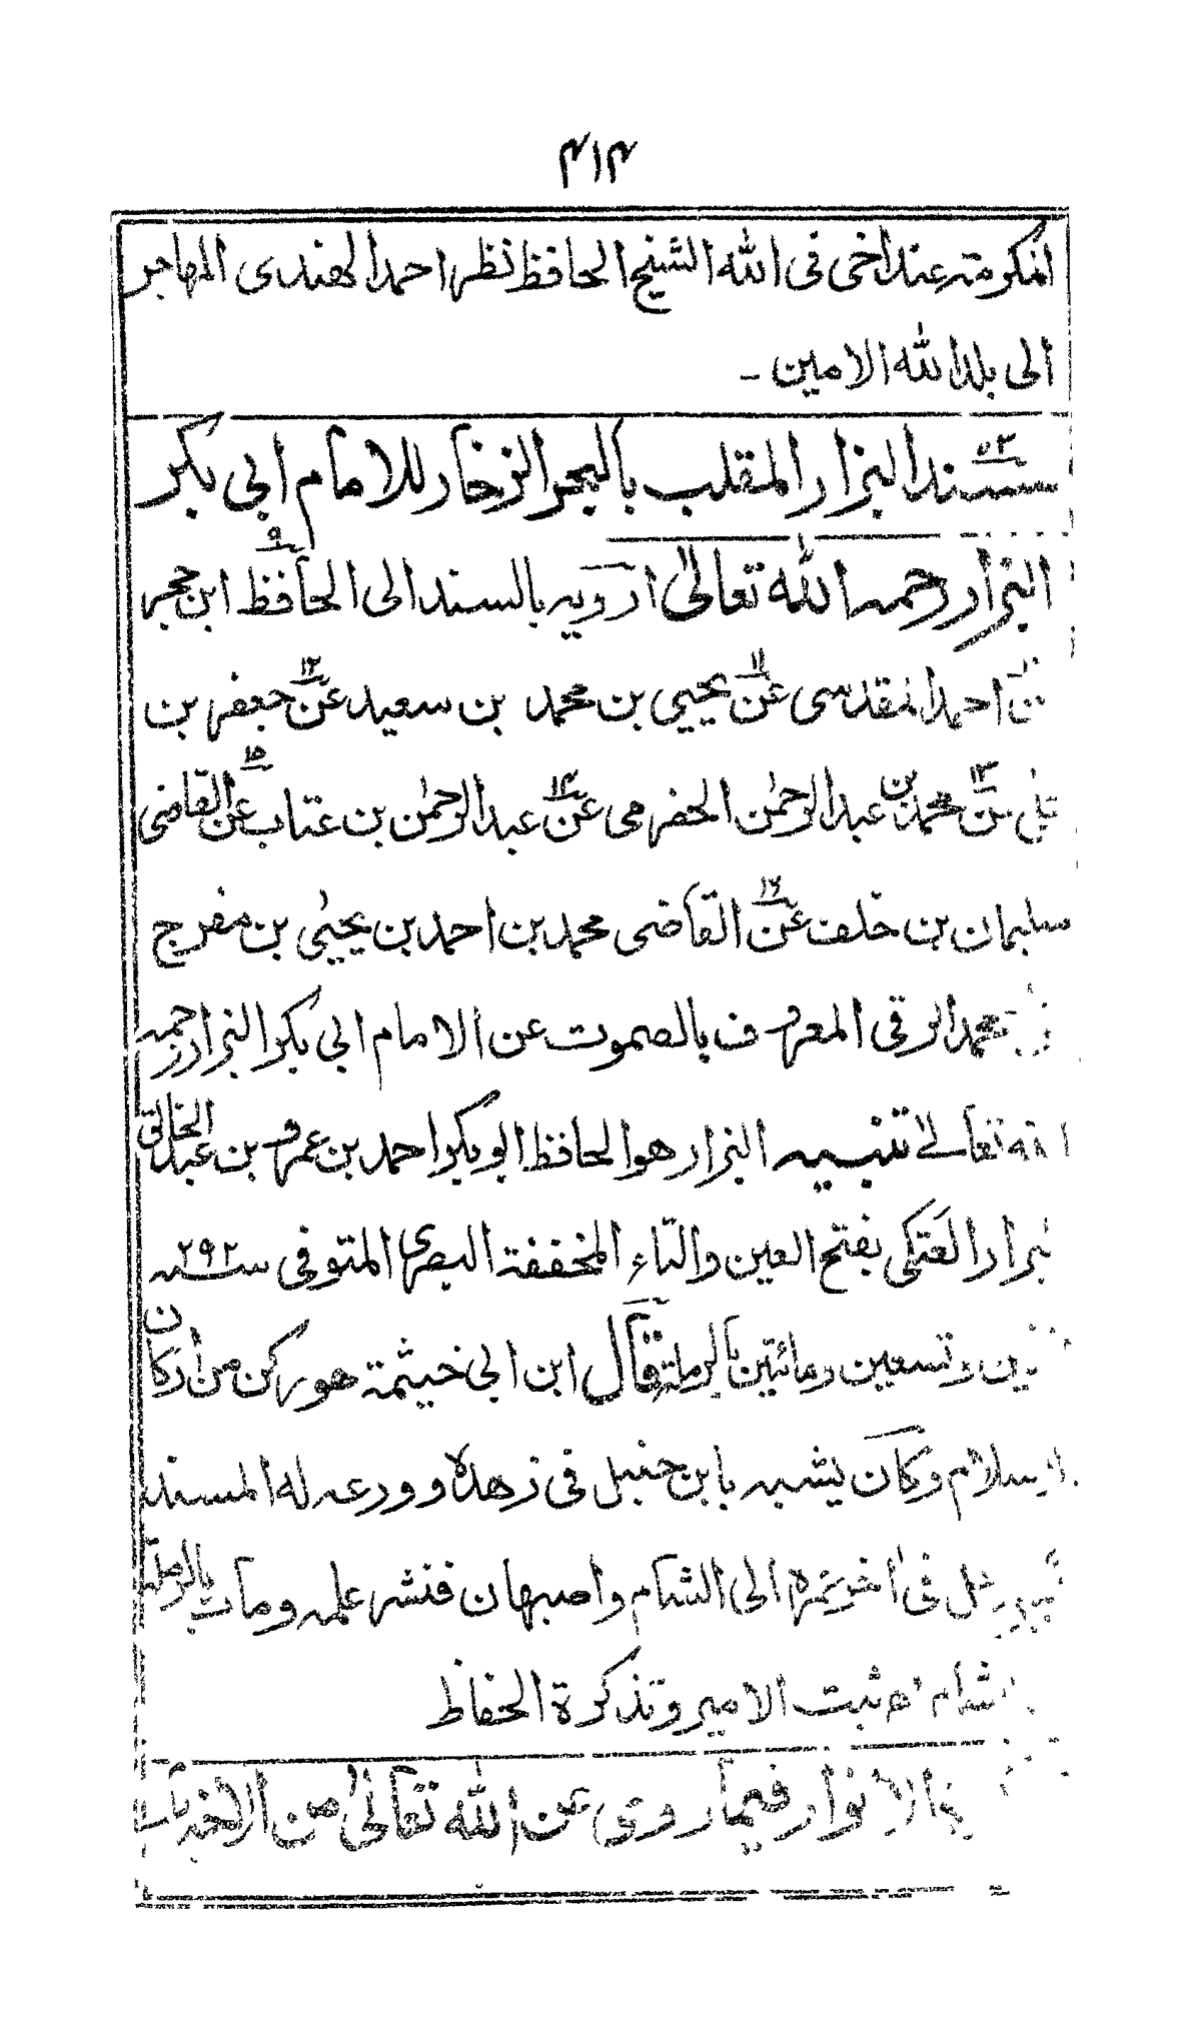 ٤١٤
المكرمة عند اخى فى الله الشيخ الحافظ نظر احمد الهندى المهاجر
الى بلد الله الامين -
٥٣
مسند البزار المقلب بالبحر الزخار للامام ابى بكر
البزار رحمه الله تعالىٰ ارويه بالسند الى الحافظ ٩ ابن حجر
احمد المقدسى عن ١١ يحيى بن محمد بن سعيد عن ١٢ جعفر بن
على عن ١٣ محمد بن عبد الرحمٰن الحضرمى عن ١٤ عبد الرحمٰن بن عتاب عن ١٥ القاضى
سليمان بن خلف عن ١٦ القاضى محمد بن احمد بن يحيىٰ بن مفرج
محمد الرقى المعروف بالصموت عن الامام ابى بكر البزار رحمه
الله تعالے تنبيه البزار هو الحافظ ابو بكر احمد بن عمرو بن عبد الخالق
البزار العَتكى بفتح العين والتاء المخففة البصرى المتوفى سنه ٢٩٢
وتسعين ومائتين بالرملة قال ابن ابى خيثمة هو ركن من اركان
الاسلام وكان يشبه بابن حنبل فى زهده وورعه له المسند
فى اٰخر عمره الى الشام واصبهان فنشر علمه ومات بالرملة
الشام اھ ثبت الامير وتذكرة الحفاظ
الانوار فيما روى عن الله تعالىٰ من الاخبار